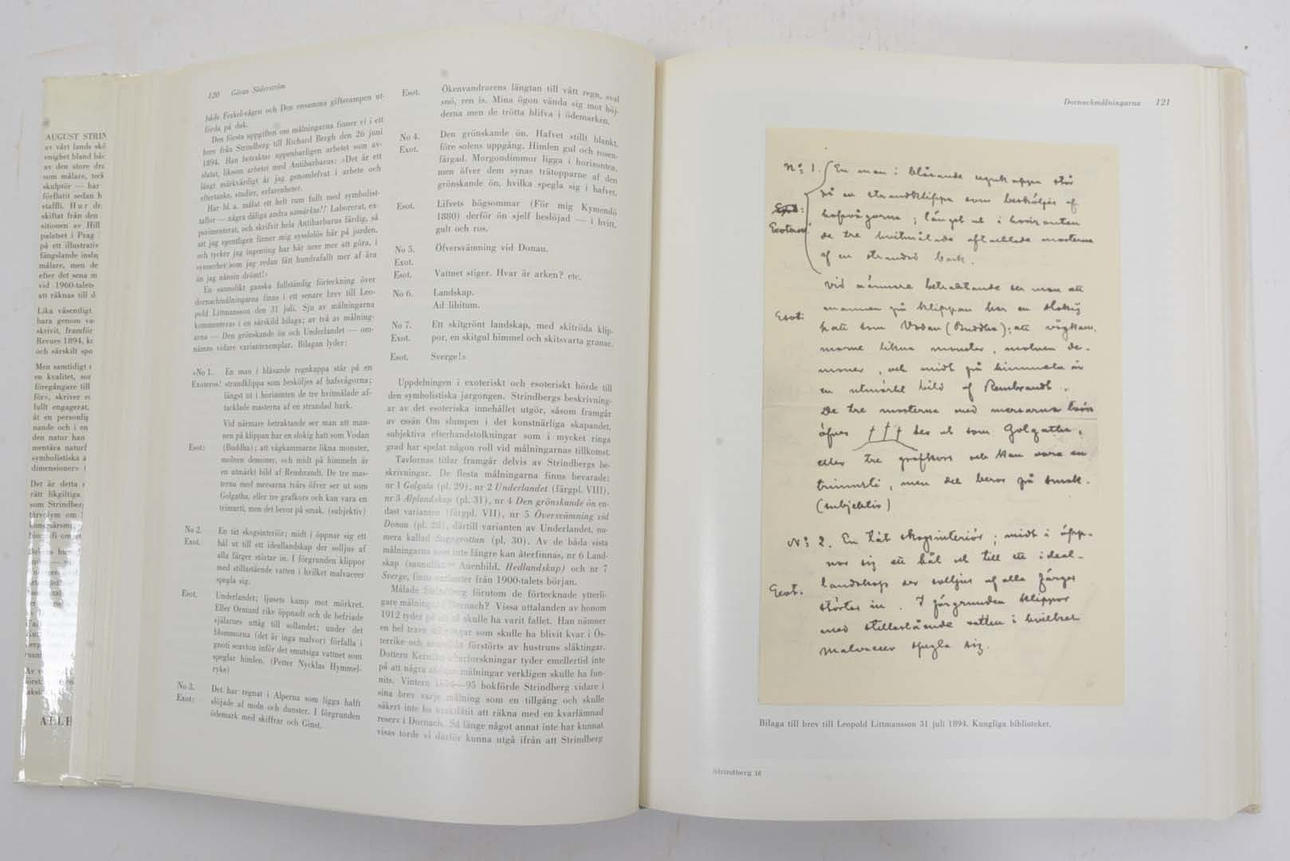 AUGUST STRIN
av vårt lands
the store
som målare,
skulptör — har
staffli. Hur
skiftat från den
palatset i Prag
på ett illustrativ
målare, men de
efter det sena
vid 1960-talets
att räknas till
Lika väsentligt
bara genom
skrivit, framför
Revues 1894,
och särskilt
Men samtidigt
en kvalitet,
föregångare till
skriver
fullt engagerat,
nande och i en
den natur han
symbolistiska
dimensionerᴅ
Det är detta
rätt likgiltiga
som Strindber
120 Göran Söderström
både Feckel-vägen och Den ensamma giftsvampen ut-
förda på duk.
Den första uppgiften om målningarna finner vi i ett
brev från Strindberg till Richard Bergh den 26 juni
1894. Han betraktar uppenbarligen arbetet som av-
slutat, liksom arbetet med Antibarbarus: »Det är ett
långt märkvärdigt år jag genomlefvat i arbete och
eftertanke, studier, erfarenheter.
Har bl. a. målat ett helt rum fullt med symbolist-
taflor — några dåliga andra samärkta!! Laborerat, ex-
perimenterat, och skrifvit hela Antibarbarus färdig, så
att jag egentligen finner mig sysslolös här på jorden,
och tycker jag ingenting har här nere mer att göra, i
synnerhet som jag redan fått hundrafallt mer af ära
än jag nånsin drömt!»
En sannolikt ganska fullständig förteckning över
dornachmålningarna finns i ett senare brev till Leo-
pold Littmansson den 31 juli. Sju av målningarna
kommenteras i en särskild bilaga; av två av målning-
arna — Den grönskande ön och Underlandet — om-
nämns vidare variantexemplar. Bilagan lyder:
»No 1. En man i blåsande regnkappa står på en
Exoteras! strandklippa som besköljes af hafsvågorna;
längst ut i horisonten de tre hvitmålade af-
tacklade masterna af en strandad bark.
Vid närmare betraktande ser man att man-
nen på klippan har en slokig hatt som Vodan
Esot: (Buddha); att vågkammarne likna monster,
molnen demoner, och midt på himmeln är
en utmärkt bild af Rembrandt. De tre mas-
terna med mersarna tvärs öfver ser ut som
Golgatha, eller tre grafkors och kan vara en
trimurti, men det beror på smak. (subjektiv)
No 2. En tät skogsinteriör; midt i öppnar sig ett
Exot. hål ut till ett ideallandskap der solljus af
alla färger störtar in. I förgrunden klippor
med stillastående vatten i hvilket malvaceer
spegla sig.
Esot. Underlandet; ljusets kamp mot mörkret.
Eller Ormuzd rike öppnadt och de befriade
själarnes uttåg till sollandet; under det
blommorna (det är inga malvor) förfalla i
gnoti seavton inför det smutsiga vattnet som
speglar himlen. (Petter Nycklas Hymmel-
ryke)
No 3. Det har regnat i Alperna som ligga halft
Exot: slöjade af moln och dunster. I förgrunden
ödemark med skiffrar och Ginst.
Esot. Ökenvandrarens längtan till vått regn, sval
snö, ren is. Mina ögon vända sig mot höj-
derna men de trötta blifva i ödemarken.
No 4. Den grönskande ön. Hafvet stillt blankt
Exot. före solens uppgång. Himlen gul och rosen-
färgad. Morgondimmor ligga i horisonten,
men öfver dem synas trätopparne af den
grönskande ön, hvilka spegla sig i hafvet.
Esot. Lifvets högsommar (För mig Kymendö
1880) derför ön sjelf beslöjad — i hvitt,
gult och ros.
No 5. Öfversvämning vid Donau.
Exot.
Esot. Vattnet stiger. Hvar är arken? etc.
No 6. Landskap.
Ad libitum.
No 7. Ett skitgrönt landskap, med skitröda klip-
Exot. por, en skitgul himmel och skitsvarta granar.
Esot. Sverge!»
Uppdelningen i exoteriskt och esoteriskt hörde till
den symbolistiska jargongen. Strindbergs beskrivning-
ar av det esoteriska innehållet utgör, såsom framgår
av essän Om slumpen i det konstnärliga skapandet,
subjektiva efterhandstolkningar som i mycket ringa
grad har spelat någon roll vid målningarnas tillkomst.
Tavlornas titlar framgår delvis av Strindbergs be-
skrivningar. De flesta målningarna finns bevarade:
nr 1 Golgata (pl. 29), nr 2 Underlandet (färgpl. VIII),
nr 3 Alplandskap (pl. 31), nr 4 Den grönskande ön en-
dast varianten (färgpl. VII), nr 5 Översvämning vid
Donau (pl. 28), därtill varianten av Underlandet, nu-
mera kallad Sagogrottan (pl. 30). Av de båda sista
målningarna som inte längre kan återfinnas, nr 6 Land-
skap (sannolikt Auenbild, Hedlandskap) och nr 7
Sverge, finns fotografier från 1900-talets början.
Målade Strindberg förutom de förtecknade ytterli-
gare målningar i Dornach? Vissa uttalanden av honom
1912 tyder på att så skulle ha varit fallet. Han nämner
en hel trave målningar som skulle ha blivit kvar i Ös-
terrike och förstörts av hustruns släktingar.
Dottern Kerstins efterforskningar tyder emellertid inte
på att några målningar verkligen skulle ha fun-
nits. Vintern 1894—95 bokförde Strindberg vidare i
sina brev varje målning som en tillgång och skulle
säkert inte ha underlåtit att räkna med en kvarlämnad
reserv i Dornach. Så länge något annat inte har kunnat
visas torde vi därför kunna utgå ifrån att Strindberg
Dornachmålningarna 121
Nº 1. En man i blåsande regnkappa står
på en strandklippa som besköljes af
Exot: hafsvågorna; längst ut i horisonten
Exoterus! de tre hvitmålade aftacklade masterna
af en strandad bark.
Vid närmare betraktande ser man att
mannen på klippan har en slokig
Esot: hatt som Vodan (Buddha); att vågkam-
marne likna monster, molnen de-
moner, och midt på himmeln är
en utmärkt bild af Rembrandt.
De tre masterna med mersarna tvärs
öfver ††† ser ut som Golgatha,
eller tre grafkors och kan vara en
trimurti, men det beror på smak.
(subjektiv)
Nº 2. En tät skogsinteriör; midt i öpp-
nar sig ett hål ut till ett ideal-
Exot. landskap der solljus af alla färger
störtar in. I förgrunden klippor
med stillastående vatten i hvilket
malvaceer spegla sig.
Bilaga till brev till Leopold Littmansson 31 juli 1894. Kungliga biblioteket.
Strindberg 16